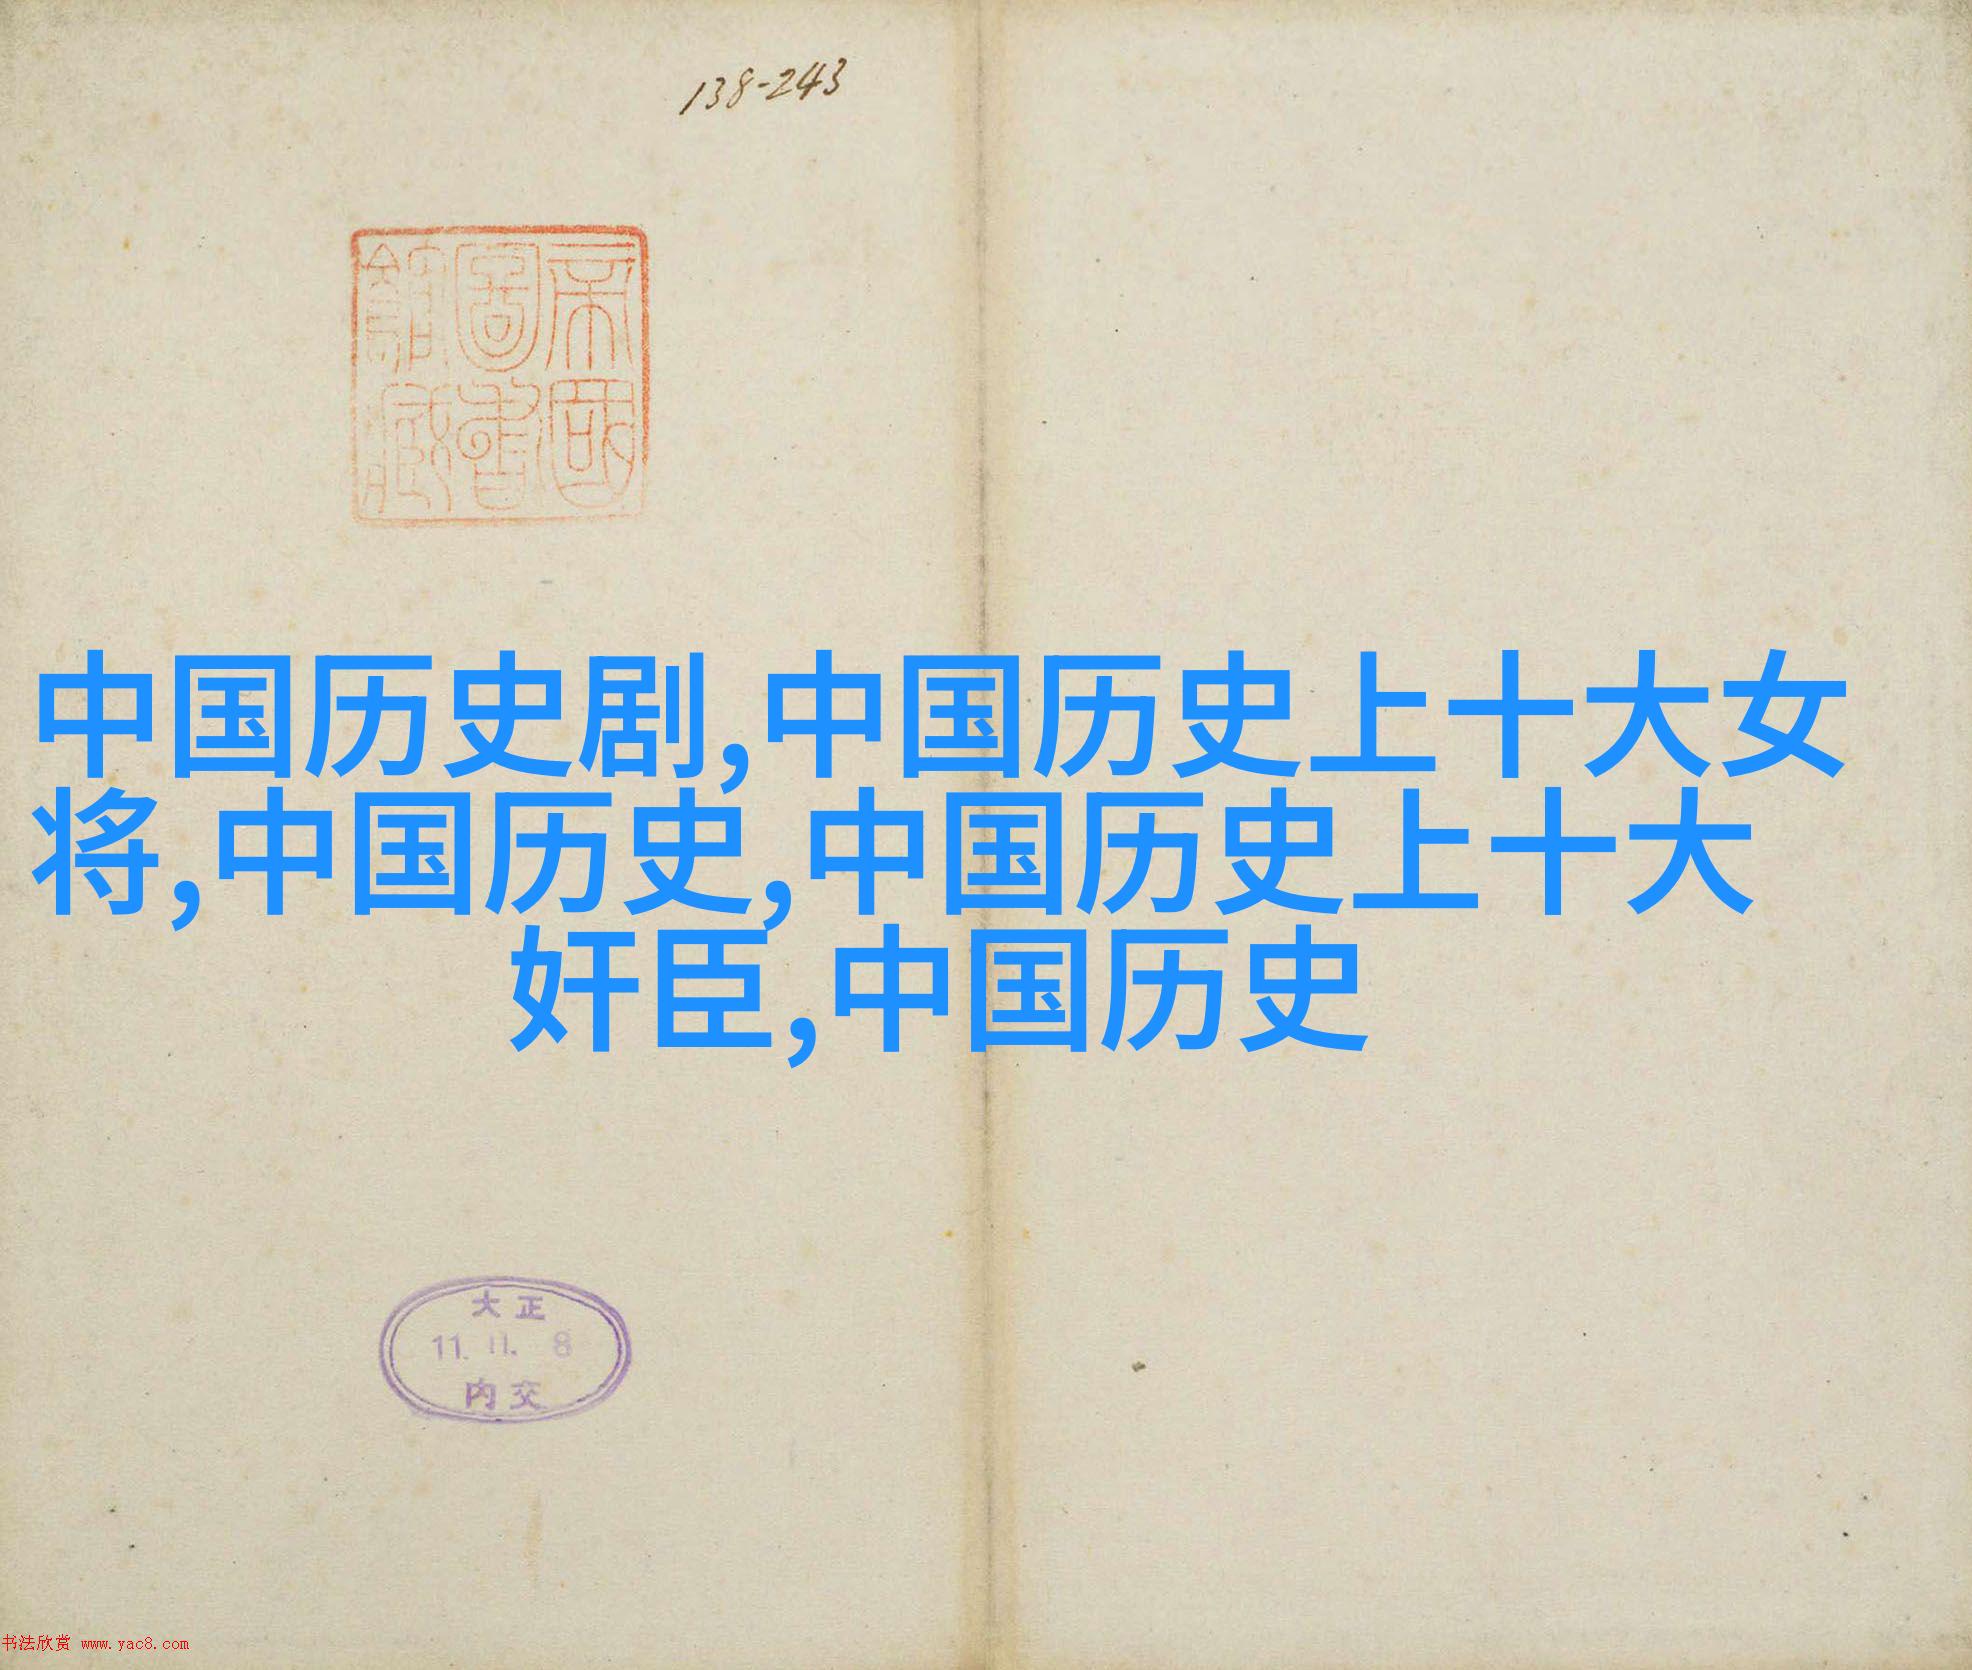 138-243
帝國
圖書
館藏
中国历史剧,中国历史上十大女
将,中国历史,中国历史上十大
奸臣,中国历史
大正
11. 11. 8
内交
书法欣赏 www.yac8.com